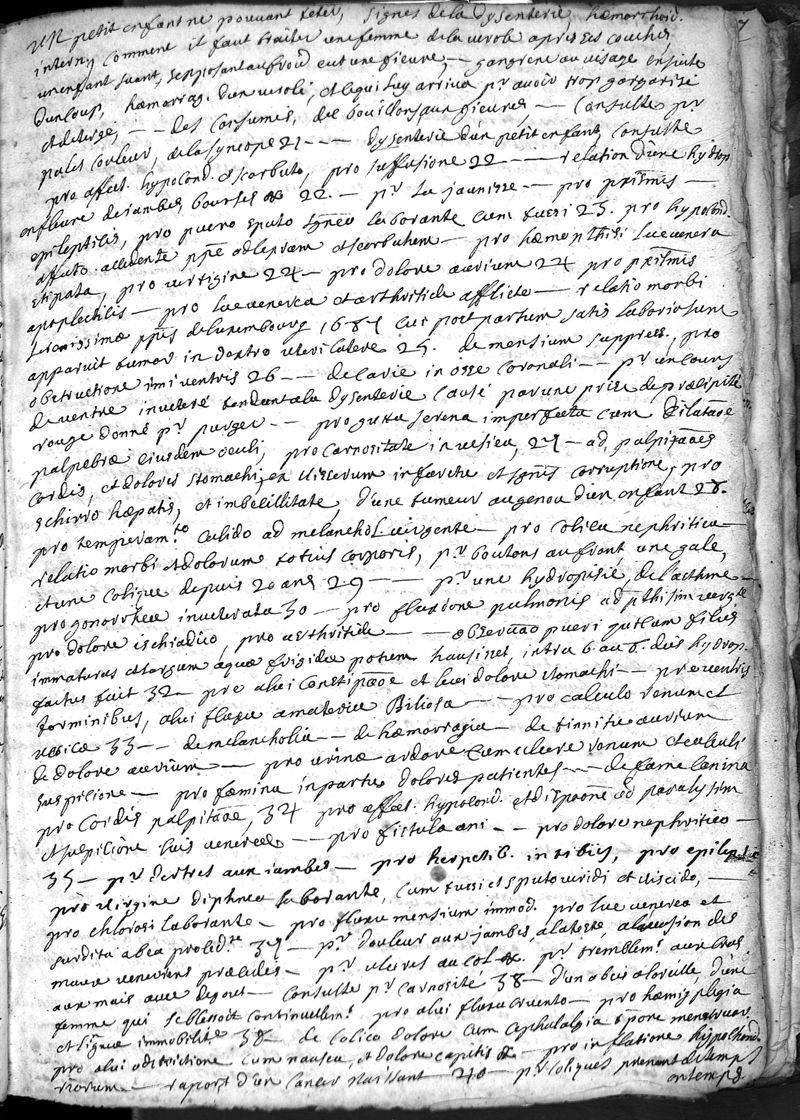 un petit enfant ne pouvant teter, signes de la dysenterie, hæmorrhoid.
interny comment il faut traiter une femme de la verole apres ses couches
un enfant suant, s'exposant au froid eut une fievre, — gangrene au visage ensuite
d'un coup, hæmorrag. d'un verolé, et ce qui luy arriva pr avoir trop gargarisé
et deterge, — — des consumés, des bouillons aux fievres, — consulte pr
pasles couleur, de la syncope 21 — — dysenterie d'un petit enfant, consulte
pro affect. hypocond. et scorbuto, pro suffusione 22 — — relation d'une hydrop
enflure de jambes, bourses & 22. — pr la jaunisse — pro —
epileptilis, pro puero sputo laborante cum tussi 23. pro hypocond.
affecto accidente ad lepram et scorbutum — pro hæmopthisi lue venerea
stipata, pro vertigine 24 — pro dolore aurium 24 pro
apoplectilis — pro lue venerea et arthritide afflicto — relatio morbi
serenissimæ de luxembourg 1687 cui post partum satis laboriosum
apparuit tumor in dextro uteri latere 25. de mensium suppress., pro
obstructione imi ventris 26 — de carie in osse coronali — pr un cours
de ventre inveteré tendant a la dysenterie causé par une prise de precipité
rouge donné pr purger — pro gutta serena imperfecta cum dilataõe
palpebræ eiusdem oculi, pro carnositate in vesica, 27 — ad palpitaões
cordis, et dolores stomachi, ex viscerum infarctu et corruptione, pro
schirro hæpatis, et imbecillitate, d'une tumeur au genou d'un enfant 28.
pro temperam.to calido ad melanchol. vergente — pro colica nephritica —
relatio morbi et dolorum totius corporis, pr boutons au front une gale,
et une colique depuis 20 ans 29 — — pr une hydropisie, de l'asthme —
pro gonorrhea inveterata 30 — pro fluxione pulmonis ad pthisim verg.te
pro dolore ischiadico, pro arthritide — — observaõ pueri qui cum
immaturas et largum aquæ frigidæ potum hausisset, intra 6. aut 8. dies hydrop.
factus fuit 32 — pro alvi constipaõe et levi dolore stomachi — pro ventris
torminibus, alvi fluxu a materia biliosa — — pro calculo renum et
vesicæ 33 — de melancholia — de hæmorragia — de tinnitu aurium
de dolore aurium — pro urinæ ardore cum ulcere renum et calculi
suspicione — pro fæmina in partu dolores patiente — — de fame canina
pro cordis palpitaõe, 34 pro affect. hypocond. et ad paralysim
et suspicione luis venereæ — — pro fistula ani — — pro dolore nephritico —
35 — pr dertres aux jambes — pro herpetib. in tibiis, pro epilepsie
pro virgine diphnea laborante, cum tussi et sputo viridi et viscido, —
pro chlorosi laborante — pro fluxu mensium immod. pro lue venerea et
surdita ab ea 37 — pr douleur aux jambes, a la teste, a des
maux veneriens precedes — pr ulceres au col &. pr tremblem.t aux bras
aux mais avec degout — consulte pr carnosité 38 — d'un abces a l'oreille, d'une
femme qui se blessoit continuellem.t pro alvi fluxu cruento — pro hæmiplegia
et linguæ immobilit.e 38 — de colico dolore cum cephalalgia tpore menstruor.
pro alvi adstrictione cum nausea, et dolore capitis & — pro inflatione hypochond.
riorum — raport d'un cancer naissant 40 — pr coliques prenant de temps
en temps.